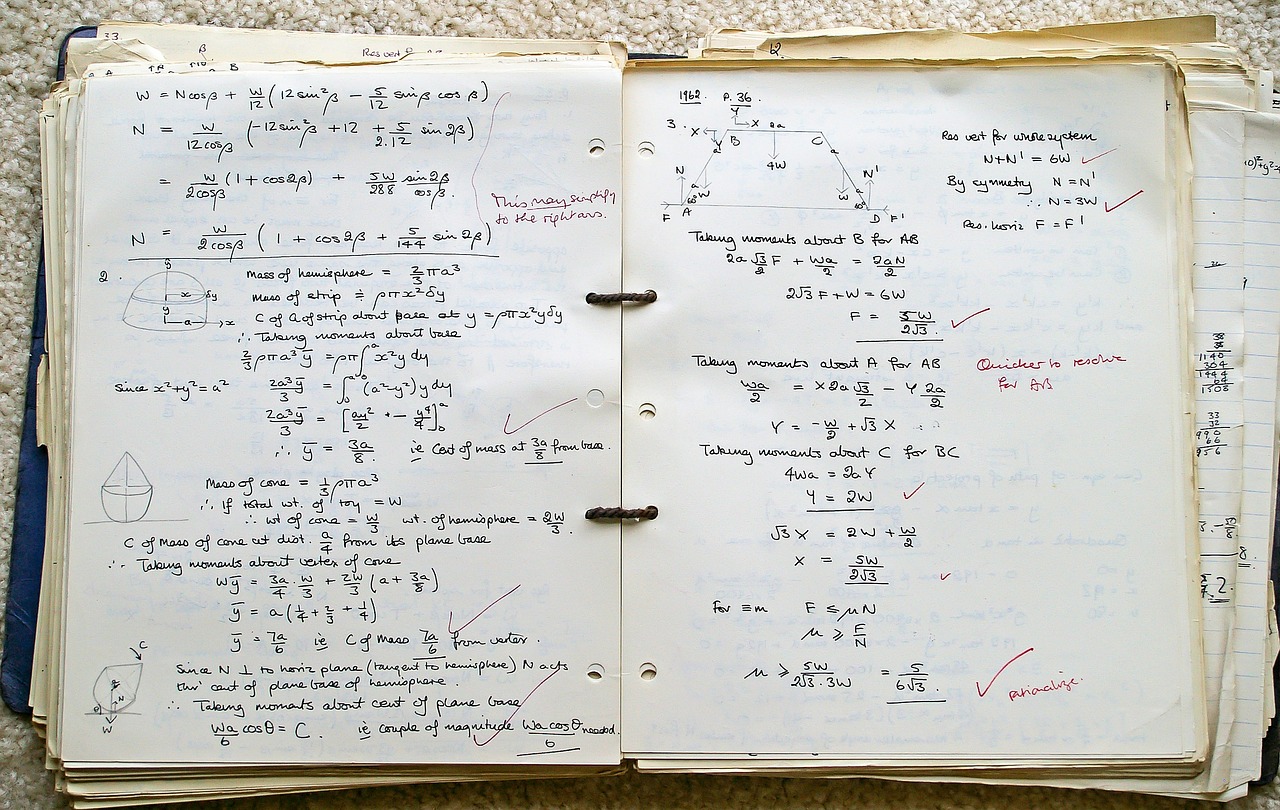 33.
β
Res vert
B
W = Ncosβ + W/12 (12sin²β − 5/12 sinβ cosβ)
N = W/12cosβ (−12sin²β + 12 + 5/2.12 sin2β)
= W/2cosβ (1 + cos2β) + 5W/288 sin2β/cosβ.
This may simplify
to the right ans.
N = W/2cosβ (1 + cos2β + 5/144 sin2β)
2.
y
x δy
y
a x
Mass of hemisphere = 2/3 πa³
Mass of strip ≑ ρπx²δy
C of G of strip about base at y = ρπx²yδy
∴ Taking moments about base
2/3 ρπa³ȳ = ρπ∫₀ᵃ x²y dy
Since x²+y²=a² 2a³ȳ/3 = ∫₀ᵃ (a²−y²)y dy
2a³ȳ/3 = [ay²/2 − y⁴/4]₀ᵃ
∴ ȳ = 3a/8 ie Cent of mass at 3a/8 from base.
Mass of cone = 1/3 ρπa³
∴ If total wt. of toy = W
∴ wt of cone = W/3 wt. of hemisphere = 2W/3.
C of Mass of cone at dist. a/4 from its plane base
∴ Taking moments about vertex of cone
Wȳ = 3a/4 . W/3 + 2W/3 (a + 3a/8)
ȳ = a(1/4 + 2/3 + 1/4)
ȳ = 7a/6 ie C of Mass 7a/6 from vertex.
C
N
θ
W
Since N ⊥ to horiz plane (tangent to hemisphere) N acts
thro' cent of plane base of hemisphere.
∴ Taking moments about cent of plane base
Wa/6 cosθ = C. ie couple of magnitude Wa cosθ/6 needed.
12.
1962. P. 36.
3.
Y
X X 2a
Y B C
a a
4W
N N'
a W W a
60° 60°
F A D F'
Res vert for whole system
N+N' = 6W
By symmetry N = N'
∴ N = 3W
Res. horiz F = F'
Taking moments about B for AB
2a √3/2 F + Wa/2 = 2aN/2
2√3 F + W = 6W
F = 5W/2√3.
Taking moments about A for AB
Quicker to resolve
for AB
Wa/2 = X2a √3/2 − Y 2a/2
Y = −W/2 + √3 X
Taking moments about C for BC
4Wa = 2aY
Y = 2W
√3 X = 2W + W/2
X = 5W/2√3
For ≡m F ≤ μN
μ ≥ F/N
μ ≥ 5W/2√3.3W = 5/6√3.
rationalize.
38
38
1140
304
1444
64
1508
33
32
990
66
956
8.
2.